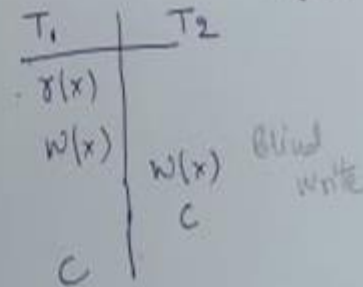 T₁ T₂
r(x)
W(x)
W(x) Blind write
C
C